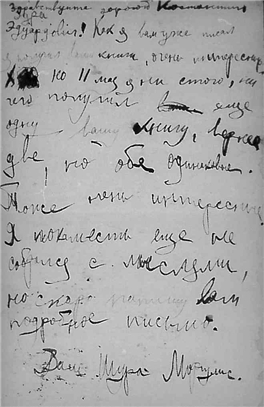 Здравствуйте дорогой Константин
Эдуардович! Как я вам уже писал
я получил ваши книги, очень интересные
но 11 мая я ни стого, ни
чего получил еще
одну - вашу книгу, вернее
две, но обе одинаковые.
Тоже очень интересные.
Я покамест еще не
собрался с мыслями,
но скоро напишу вам
подробное письмо.
Ваш Шура